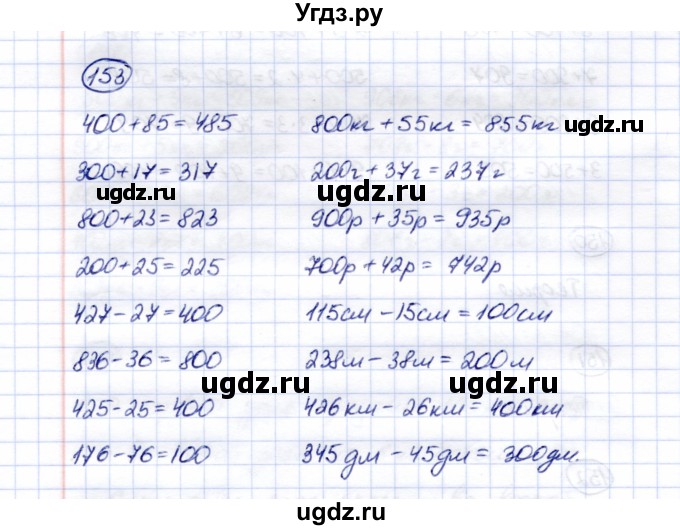 Угдз.ру
153
400+85=485 800кг+55кг=855кг
300+17=317 200г+37г=237г
ugdz.ru ugdz.ru
800+23=823 900р+35р=935р
200+25=225 700р+42р=742р
427-27=400 115см-15см=100см
836-36=800 238м-38м=200м
ugdz.ru ugdz.ru
425-25=400 426км-26км=400км
176-76=100 345дм-45дм=300дм.
ugdz.ru